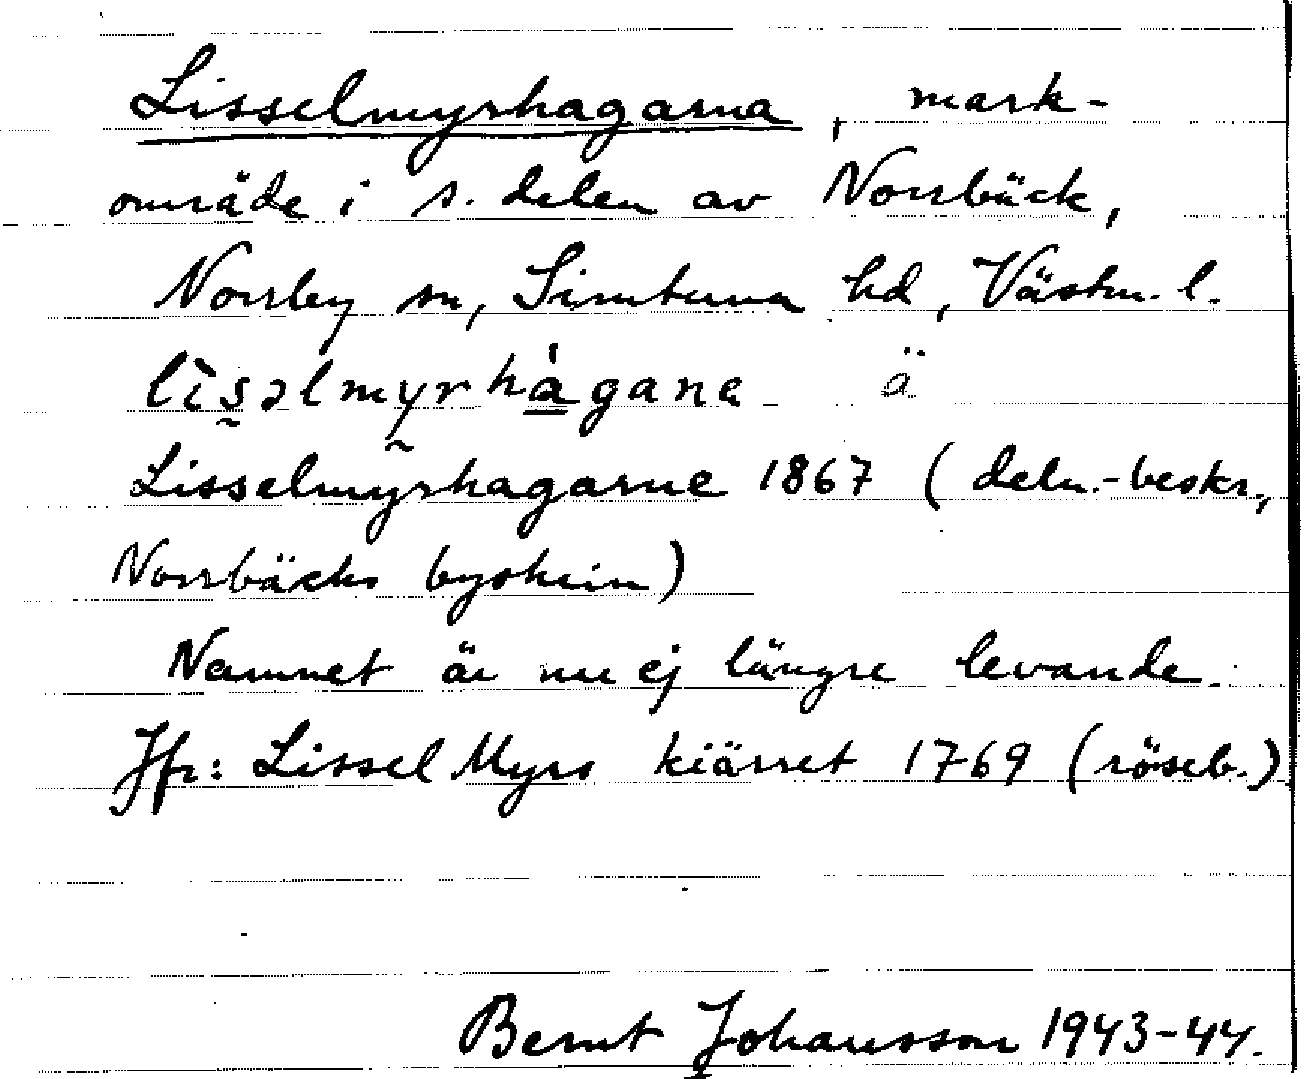 Lisselmyrhagarna, mark-
område i s. delen av Norrbäck,
Norrby sn, Simtuna hd, Västm. l.
lisəlmyrhagana ä
Lisselmyrhagarne 1867 (deln.-beskr.,
Norrbäcks byskrin)
Namnet är nu ej längre levande.
Jfr: Lissel Myrs kiärret 1769 (röseb.)
Bernt Johansson 1943-44.